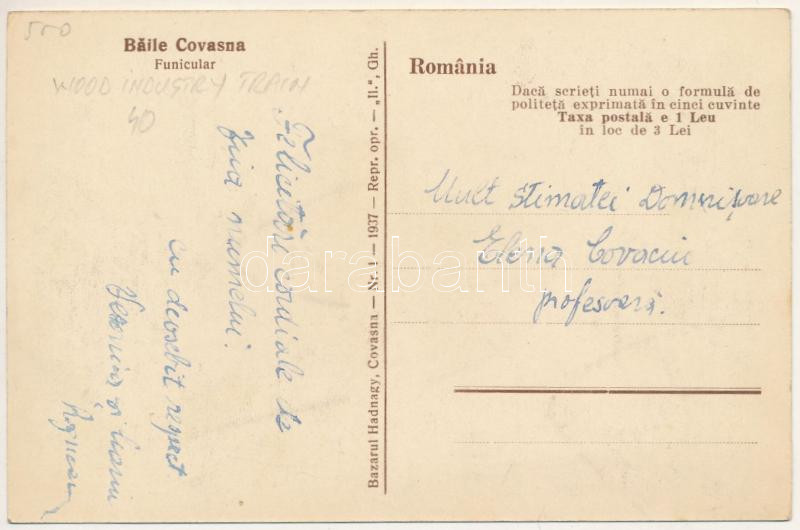 500
Băile Covasna
Funicular
WOOD INDUSTRY TRAIN
40
Felicitări cordiale de
ziua numelui.
cu deosebit respect
Veronica și
Bazarul Hadnagy, Covasna — Nr. 1 — 1937 — Repr. opr. — „Il.“, Gh.
România
Dacă scrieți numai o formulă de
politeță exprimată în cinci cuvinte
Taxa postală e 1 Leu
în loc de 3 Lei
Mult stimatei Domnișoare
Elena Covaciu
profesoară.
darabanth